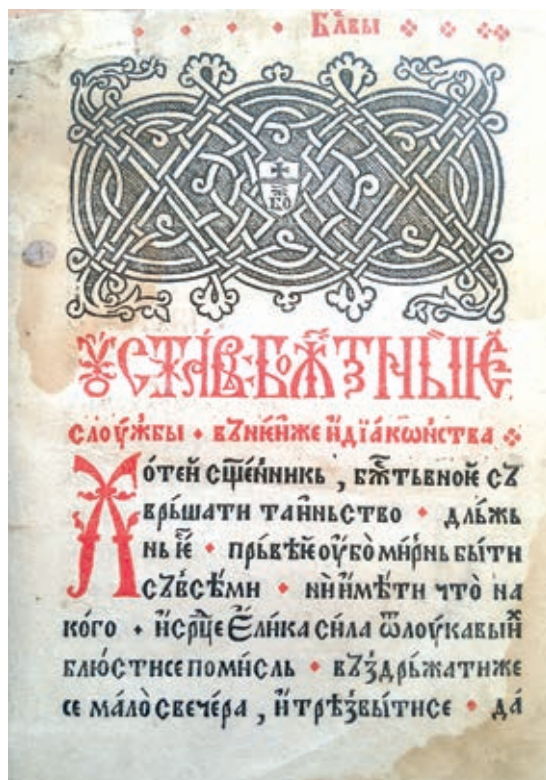 Бл҃вы
оуставь · бож҃тʼвныѥ
слоу́жбы · въ нѥ́йже и҆ дїа́кѡнства
Хотей сщ҃е́нникь , бж҃тьвноѥ съ
врьшати та́иньство · длъ́жь
нь ѥ҆́ · прь́вѣѥ оу҆́бо ми́рнь быти
съ всѣ́ми · нѝ и҆мѣ́ти что̀ на
ко́го · и҆ ср҃це е҆ли́ка си́ла ѿ лоука́выи х
блюсти се по́мисль · въ здръ́жати же
се ма́ло с вече́ра , и҆ трѣзви́ти се · да́